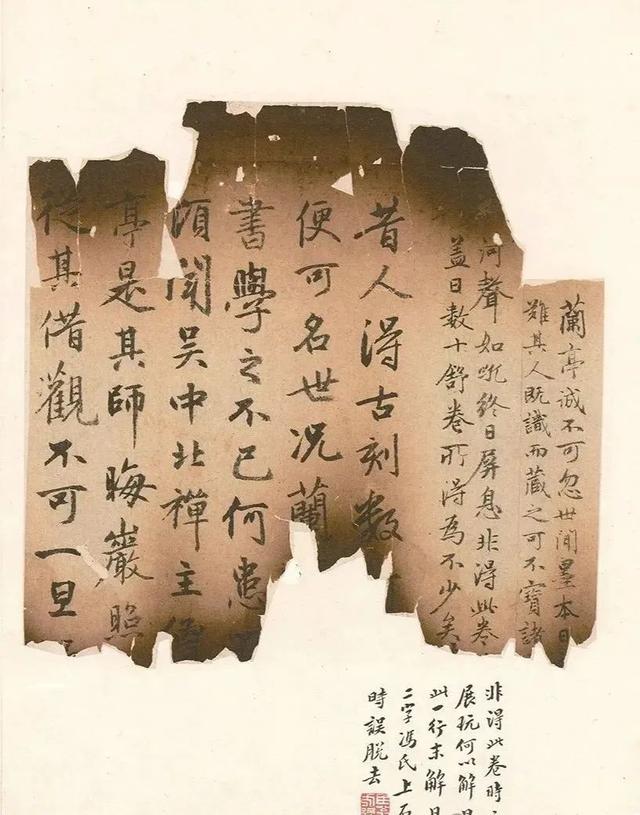 蘭亭誠不可忽世間墨本日
難其人既識而藏之可不寶諸
河聲如吼終日屏息非得此卷
蓋日數十舒卷所得為不少矣
昔人得古刻數
便可名世况蘭
書學之不已何患
頃聞吴中北禪主僧
亭是其師晦巖照
從其借觀不可一旦
非得此卷時
展玩何以解日
此一行末解日
二字馮氏上石
時誤脱去